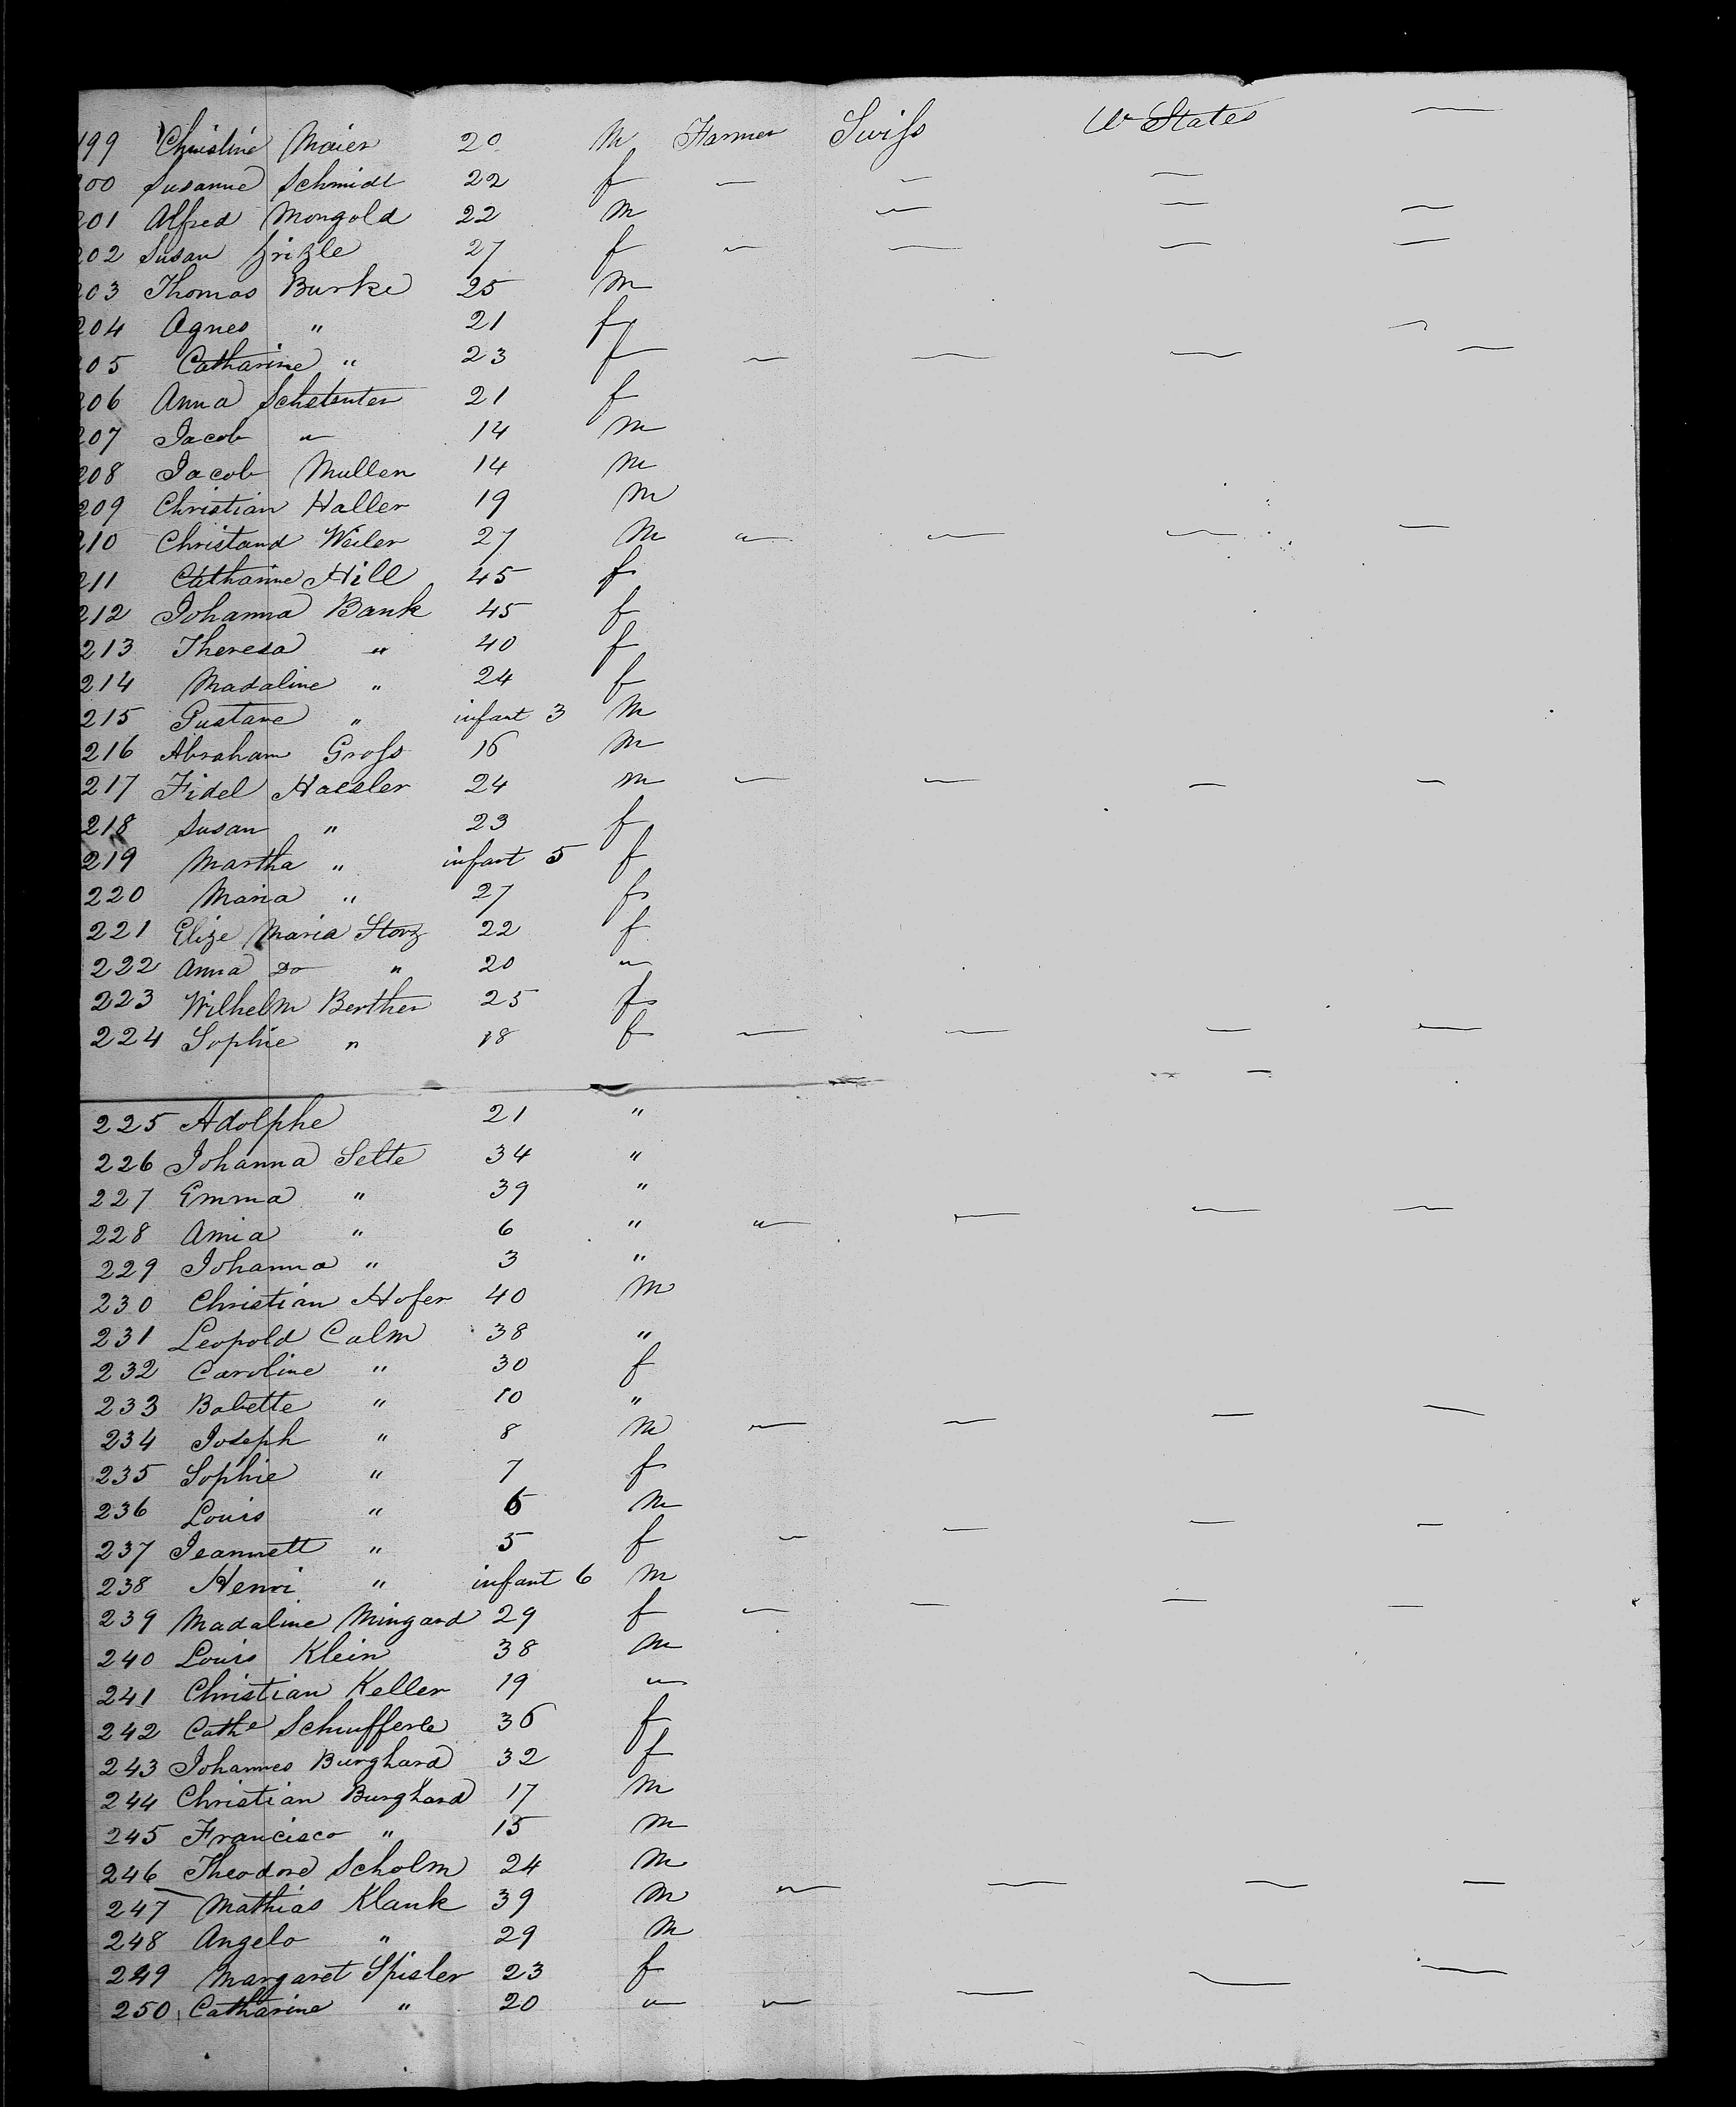 199 Christine Maier 20 M Farmer Swiss U States —
200 Susanne Schmidt 22 f — — —
201 Alfred Mongold 22 M — — —
202 Susan 27 f — — — —
203 Thomas Burke 25 M
204 Agnes " 21 f
205 Catharine " 23 f — — — —
206 Anna 21 f
207 Jacob " 14 M
208 Jacob Muller 14 M
209 Christian Haller 19 M
210 Christand Weiler 27 M " — — —
211 Catharine Hill 45 f
212 Johanna Bank 45 f
213 Theresa " 40 f
214 Madaline " 24 f
215 Gustave " infant 3 M
216 Abraham Gross 16 M
217 Fidel Haesler 24 M — — — —
218 Susan " 23 f
219 Martha " infant 5 f
220 Maria " 27 f
221 Elize Maria Storz 22 f
222 Anna Do " 20 "
223 Wilhelm Berther 25 f
224 Sophie " 18 f — — — —
225 Adolphe 21 "
226 Johanna Selte 34 "
227 Emma " 39 "
228 Amia " 6 " " — — —
229 Johanna " 3 "
230 Christian Hofer 40 M
231 Leopold Calm 38 "
232 Caroline " 30 f
233 Babette " 10 "
234 Joseph " 8 M — — — —
235 Sophie " 7 f
236 Louis " 6 M
237 Jeannett " 5 f — — — —
238 Henri " infant 6 M
239 Madaline Mingard 29 f — — — —
240 Louis Klein 38 M
241 Christian Keller 19 "
242 Cathe Schufferle 36 f
243 Johannes Burghard 32 f
244 Christian Burghard 17 M
245 Francisco " 15 M
246 Theodore Scholm 24 M
247 Mathias Klank 39 M " — — —
248 Angelo " 29 M
249 Margaret Spisler 23 f — —
250 Catharine " 20 " " —